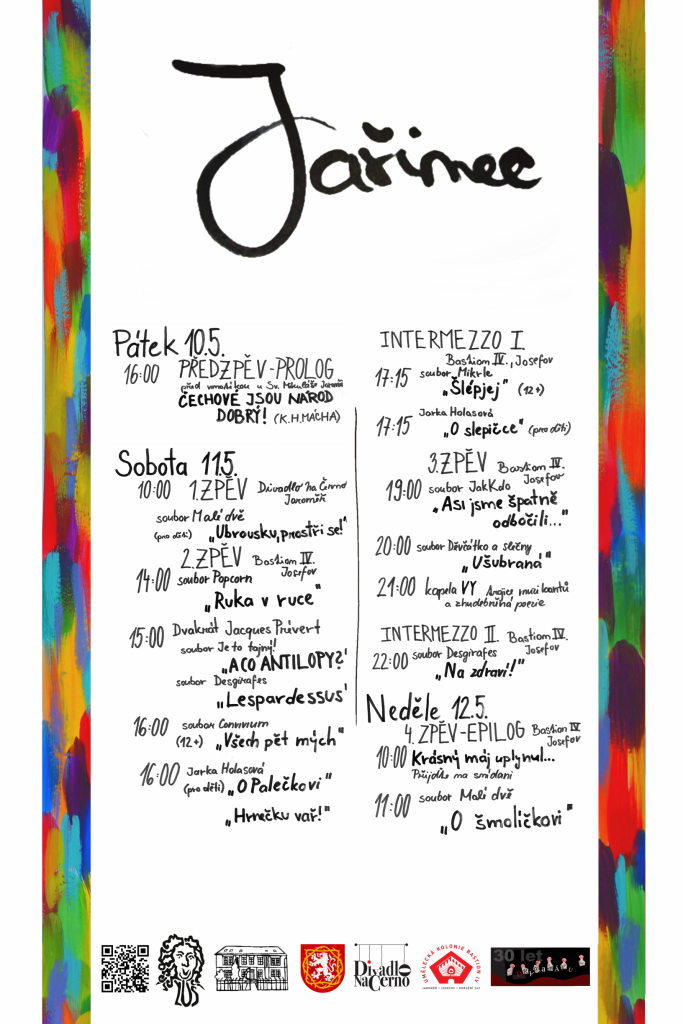 Jařinec
Pátek 10.5.
16:00 PŘEDZPĚV-PROLOG
před vraty u Sv. Mikuláše Jaroměř
ČECHOVÉ JSOU NÁROD
DOBRÝ! (K.H.MÁCHA)
Sobota 11.5.
10:00 1.ZPĚV Divadlo Na Černo
Jaroměř
soubor Malé dvě
(pro děti) „Ubrousku, prostři se!"
2.ZPĚV Bastion IV.
Josefov
14:00 soubor Popcorn
„Ruka v ruce"
15:00 Dvakrát Jacques Prévert
soubor Je to tajný!
„A CO ANTILOPY?"
soubor Desgirafes
„Lespardessus"
16:00 soubor Convivium
(12+) „Všech pět mých"
16:00 Jarka Holasová
(pro děti) „O Palečkovi"
„Hrnečku vař!"
INTERMEZZO I.
Bastion IV., Josefov
17:15 soubor Mikrle
„Šlépjej" (12+)
17:15 Jarka Holasová
„O slepičce" (pro děti)
3.ZPĚV Bastion IV.
Josefov
19:00 soubor JakKdo
„Asi jsme špatně
odbočili..."
20:00 soubor Děvčátko a slečny
„Ušubraná"
21:00 kapela VY
a zhudebněná poezie
INTERMEZZO II. Bastion IV.
Josefov
22:00 soubor Desgirafes
„Na zdraví!"
Neděle 12.5.
4.ZPĚV-EPILOG Bastion IV
Josefov
10:00 Krásný máj uplynul...
Přijďte na snídani
11:00 soubor Malé dvě
„O Smolíčkovi"
Divadlo
NaČerno
UMĚLECKÁ KOLONIE BASTION IV
30 let